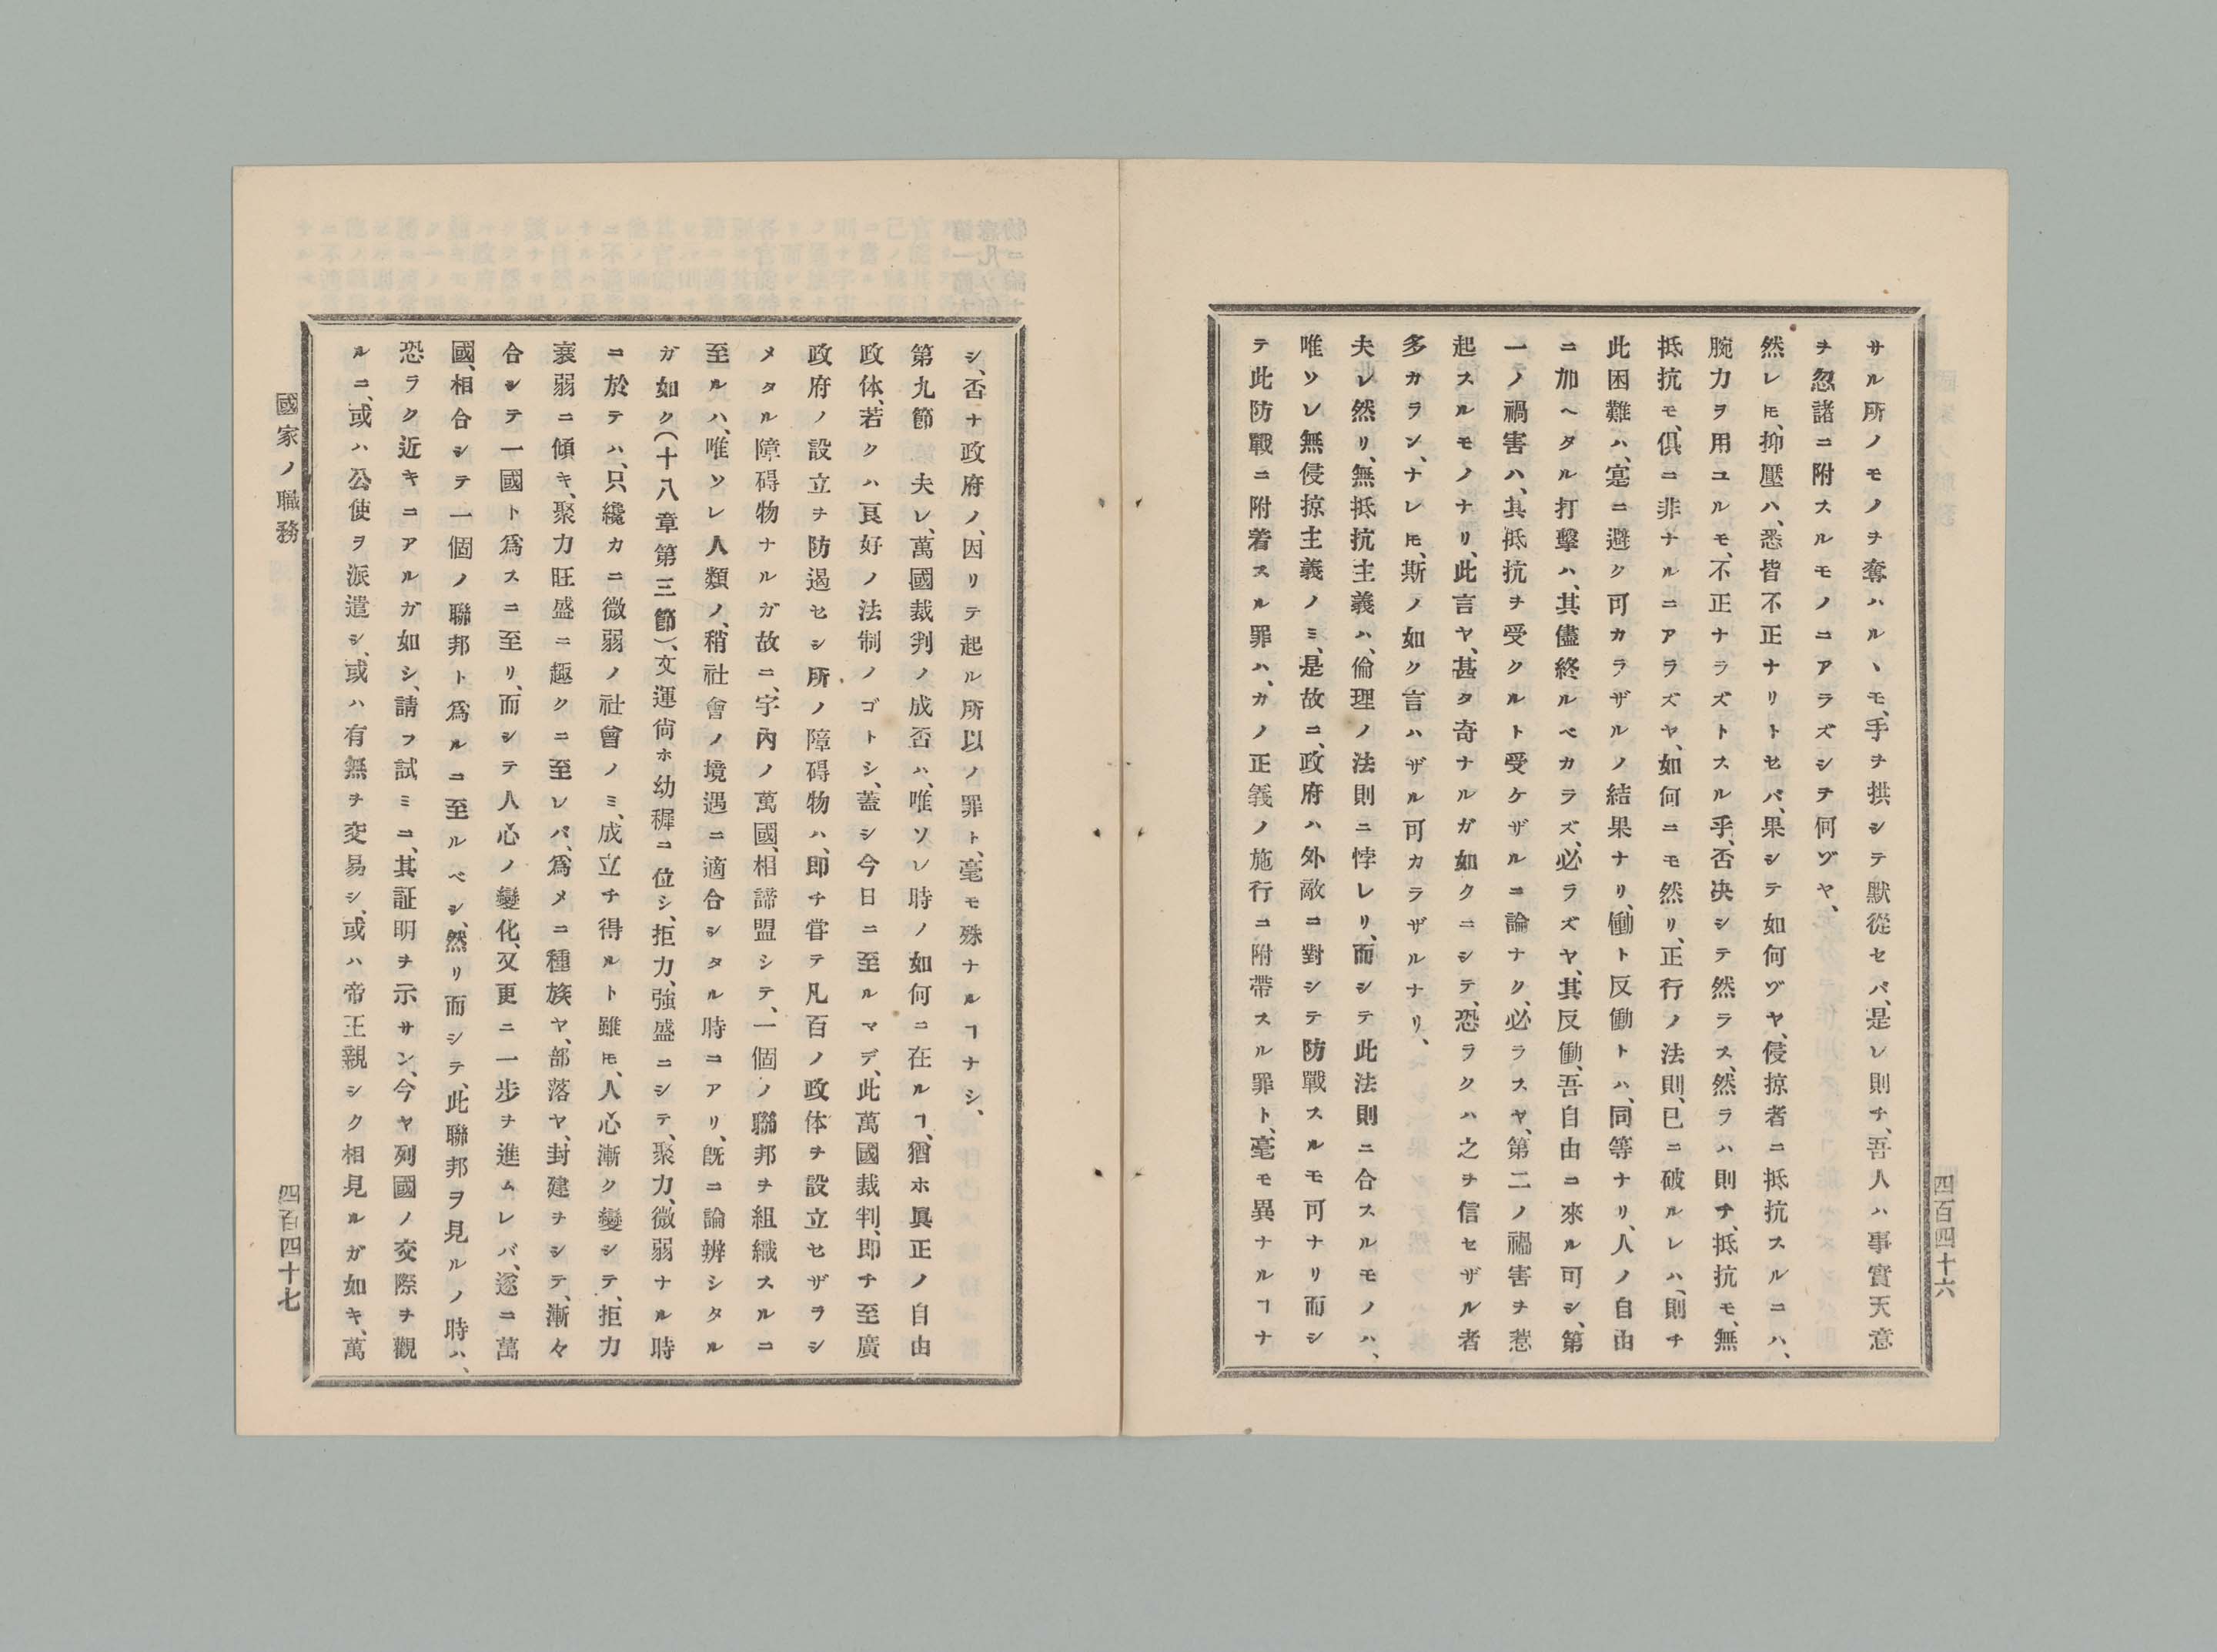 サル所ノモノヲ奪ハルヽモ、手ヲ拱シテ默從セバ、是レ則チ、吾人ハ事實天意
ヲ忽諸ニ附スルモノニアラズシテ何ゾヤ、
然レㇳモ、抑壓ハ、悉皆不正ナリトセバ、果シテ如何ゾヤ、侵掠者ニ抵抗スルニハ、
腕力ヲ用ユルモ、不正ナラズトスル乎、否決シテ然ラス、然ラハ則チ、抵抗モ、無
抵抗モ、俱ニ非ナルニアラズヤ、如何ニモ然リ、正行ノ法則、已ニ破ルレハ、則チ
此困難ハ、寔ニ避ク可カラザルノ結果ナリ、働ト反働トハ、同等ナリ、人ノ自由
ニ加ヘタル打擊ハ、其儘終ルベカラズ、必ラズヤ、其反働、吾自由ニ來ル可シ、第
一ノ禍害ハ、其抵抗ヲ受クルト受ケザルニ論ナク、必ラスヤ、第二ノ禍害ヲ惹
起スルモノナリ、此言ヤ、甚タ奇ナルガ如クニシテ、恐ラクハ之ヲ信セザル者
多カラン、ナレㇳモ、斯ノ如ク言ハザル可カラザルナリ、
夫レ然リ、無抵抗主義ハ、倫理ノ法則ニ悖レリ、而シテ此法則ニ合スルモノハ、
唯ソレ無侵掠主義ノミ、是故ニ、政府ハ外敵ニ對シテ防戰スルモ可ナリ而シ
テ此防戰ニ附着スル罪ハ、カノ正義ノ施行ニ附帶スル罪ト、毫モ異ナルヿナ
四百四十六
シ、否ナ政府ノ、因リテ起ル所以ノ罪ト、毫モ殊ナルヿナシ、
第九節 夫レ、萬國裁判ノ成否ハ、唯ソレ時ノ如何ニ在ルヿ、猶ホ眞正ノ自由
政体、若クハ良好ノ法制ノゴトシ、蓋シ今日ニ至ルマデ、此萬國裁判、即チ至廣
政府ノ設立ヲ防遏セシ所ノ障碍物ハ、即チ嘗テ凡百ノ政体ヲ設立セザラシ
メタル障碍物ナルガ故ニ、宇內ノ萬國、相諦盟シテ、一個ノ聯邦ヲ組織スルニ
至ルハ、唯ソレ人類ノ、稍社會ノ境遇ニ適合シタル時ニアリ、既ニ論辨シタル
ガ如ク(十八章第三節)、文運尙ホ幼穉ニ位シ、拒力、強盛ニシテ、聚力、微弱ナル時
ニ於テハ、只纔カニ微弱ノ社會ノミ、成立チ得ルト雖モ、人心漸ク變シテ、拒力
衰弱ニ傾キ、聚力旺盛ニ趣クニ至レバ、爲メニ種族ヤ、部落ヤ、封建ヲシテ、漸々
合シテ一國ト爲スニ至リ、而シテ人心ノ變化、又更ニ一步ヲ進ムレバ、遂ニ萬
國、相合シテ一個ノ聯邦ト爲ルニ至ルベシ、然リ而シテ、此聯邦ヲ見ルノ時ハ、
恐ラク近キニアルガ如シ、請フ試ミニ、其証明ヲ示サン、今ヤ列國ノ交際ヲ觀
ルニ、或ハ公使ヲ派遣シ、或ハ有無ヲ交易シ、或ハ帝王親シク相見ルガ如キ、萬
國家ノ職務
四百四十七